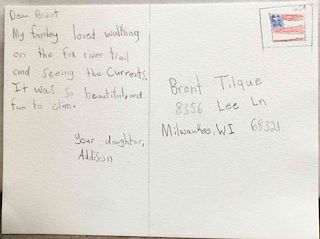 Dear Brent
My famley loved walthing
on the fox river trail
and seeing the Currents.
It was so beautiful, and
fun to clim.
Your daughter,
Addison
USA
Brent Tilque
8356 Lee Ln
Milwaukee, WI 68321